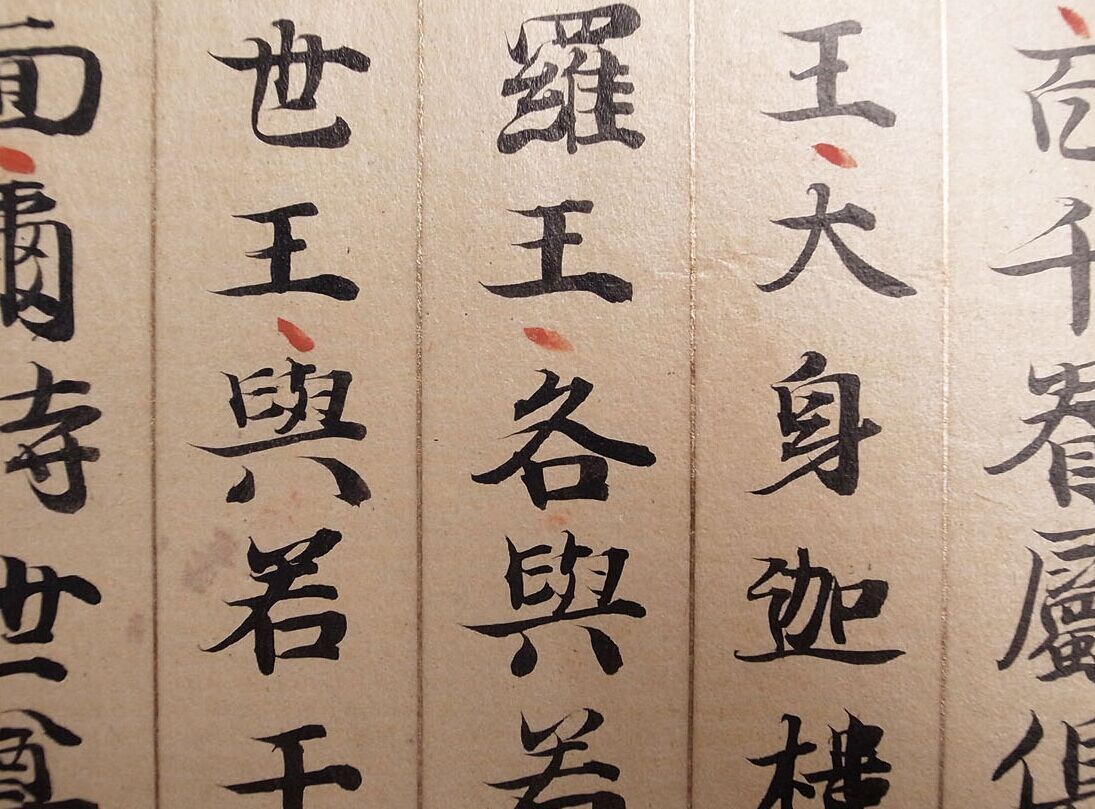 百千眷屬俱
王大身迦樓
羅王各與若
世王與若干
面爾時世尊